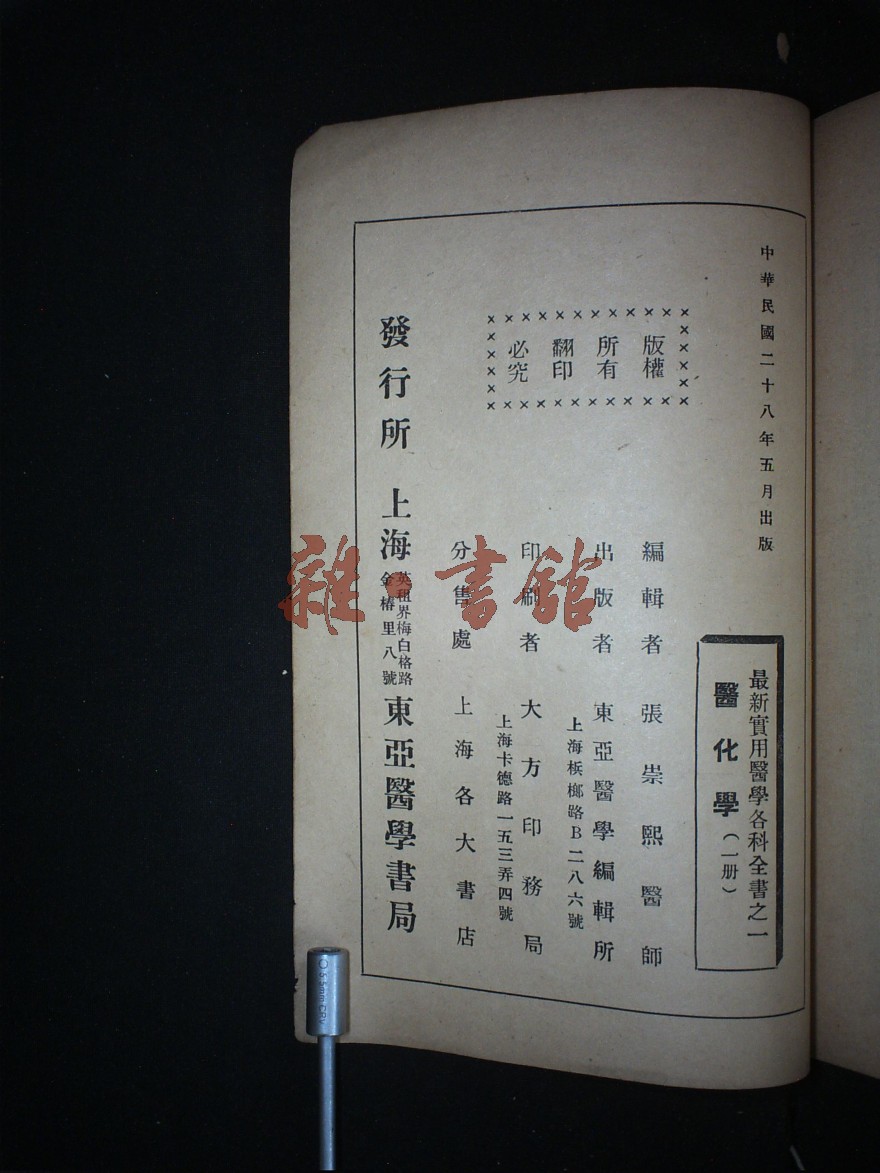 中華民國二十八年五月出版
最新實用醫學各科全書之一
醫化學（一册）
版權
所有
翻印
必究
編輯者 張崇熙醫師
出版者 東亞醫學編輯所
上海梹榔路B二八六號
印刷者 大方印務局
上海卡德路一五三弄四號
分售處 上海各大書店
發行所 上海 英租界梅白格路
金椿里八號 東亞醫學書局
雜·書館